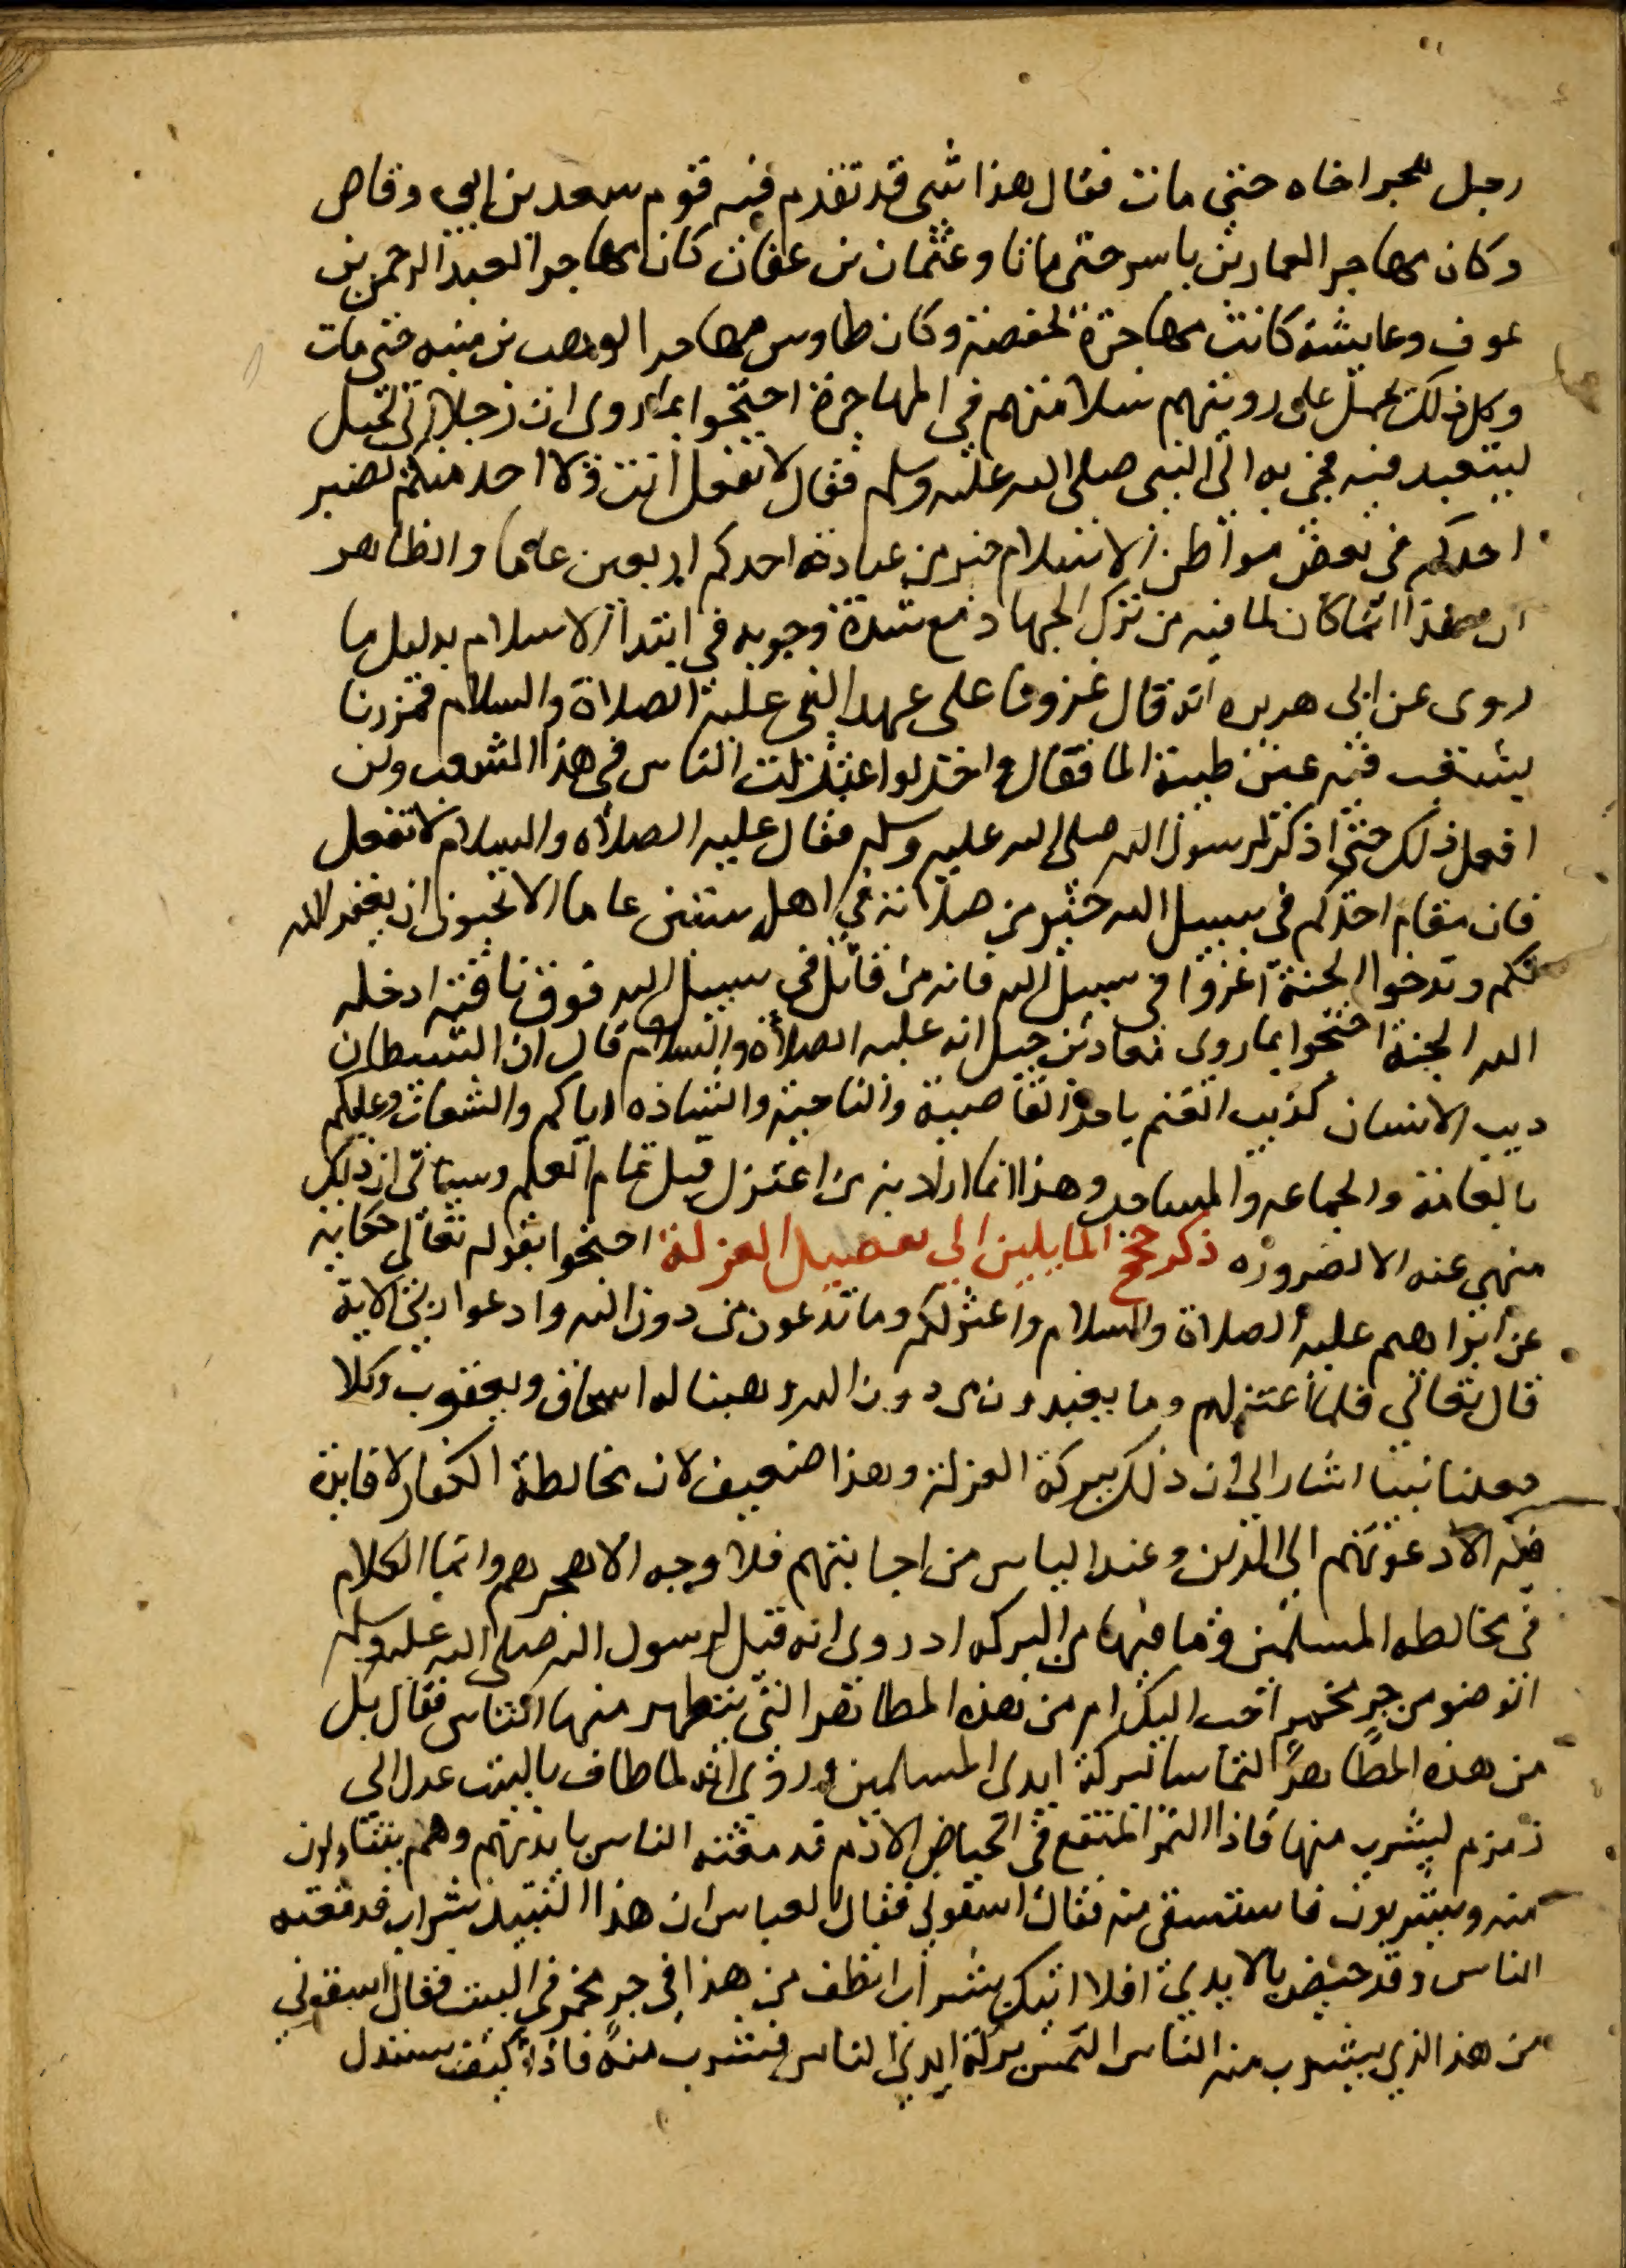 رجل هجر اخاه حتى مات فقال هذا شي قد تقدم فيه قوم سعد بن ابي وقاص
وكان مهاجر العمار بن ياسر حتى ماتا وعثمان بن عفان كان مهاجرا لعبد الرحمن بن
عوف وعايشة كانت مهاجرة لحفصة وكان طاوس مهاجرا لوهب بن منبه حتى مات
وكل ذلك يحمل على رويتهم سلامتهم في المهاجرة احتجوا بما روى ان رجلا اتى الجبل
ليتعبد فيه فجي به الى النبي صلى الله عليه وسلم فقال لا تفعل انت ولا احد منكم لصبر
احدكم في بعض مواطن الاسلام خير من عبادة احدكم اربعين عاما والظاهر
ان هذا انما كان لما فيه من ترك الجهاد مع شدة وجوبه في ابتدا الاسلام بدليل ما
روى عن ابي هريره انه قال غزونا على عهد النبي عليه الصلاة والسلام فمررنا
بشعب فيه عيينة طيبة الما فقال واحد لو اعتزلت الناس في هذا الشعب ولن
افعل ذلك حتى اذكر لرسول الله صلى الله عليه وسلم فقال عليه الصلاه والسلام لا تفعل
فان مقام احدكم في سبيل الله خير من صلاته في اهله ستين عاما الا تحبون ان يغفر الله
لكم وتدخلوا الجنة اغزوا في سبيل الله فانه من قاتل في سبيل الله فوق ناقة ادخله
الله الجنة احتجوا بما روى معاذ بن جبل انه عليه الصلاه والسلام قال ان الشيطان
ديب الانسان كذيب الغنم ياخذ القاصية والناحية والشاذه اياكم والشعاب وعليكم
بالعامة والجماعه والمساجد وهذا انما اراد به من اعتزل قبل تمام العلم وسياتي ان ذلك
منهي عنه الا لضروره ذكر حجج المايلين الى تفضيل العزلة احتجوا بقوله تعالى حكاية
عن ابراهيم عليه الصلاة والسلام واعتزلكم وما تدعون من دون الله وادعوا ربي الاية
قال تعالى فلما اعتزلهم وما يعبدون من دون الله وهبنا له اسحاق ويعقوب وكلا
جعلنا نبيا اشار الى ان ذلك ببركة العزلة وهذا ضعيف لان مخالطة الكفار لا فايدة
فيه الا دعوتهم الى الدين وعند الياس من اجابتهم فلا وجه الا هجرهم وانما الكلام
في مخالطه المسلمين وما فيها من البركه اذ روى انه قيل لرسول الله صلى الله عليه وسلم
الوضو من جر مخمر احب اليك ام من هذه المطاهر التي يتطهر منها الناس فقال بل
من هذه المطاهر التماسا لبركة ايدي المسلمين وروى انه لما طاف بالبيت عدل الى
زمزم ليشرب منها فاذا التمر المنقع في الحياض الادم قد مغثه الناس بايديهم وهم يتناولون
منه ويشربون فاستسقى منه فقال اسقوني فقال العباس ان هذا النبيذ شراب قد مغثه
الناس وقد خيض بالايدي افلا اتيك بشراب انظف من هذا في جر مخمر في البيت فقال اسقوني
من هذا الذي يشرب منه الناس التمس بركة ايدي الناس فشرب منه فاذا كيف يستدل